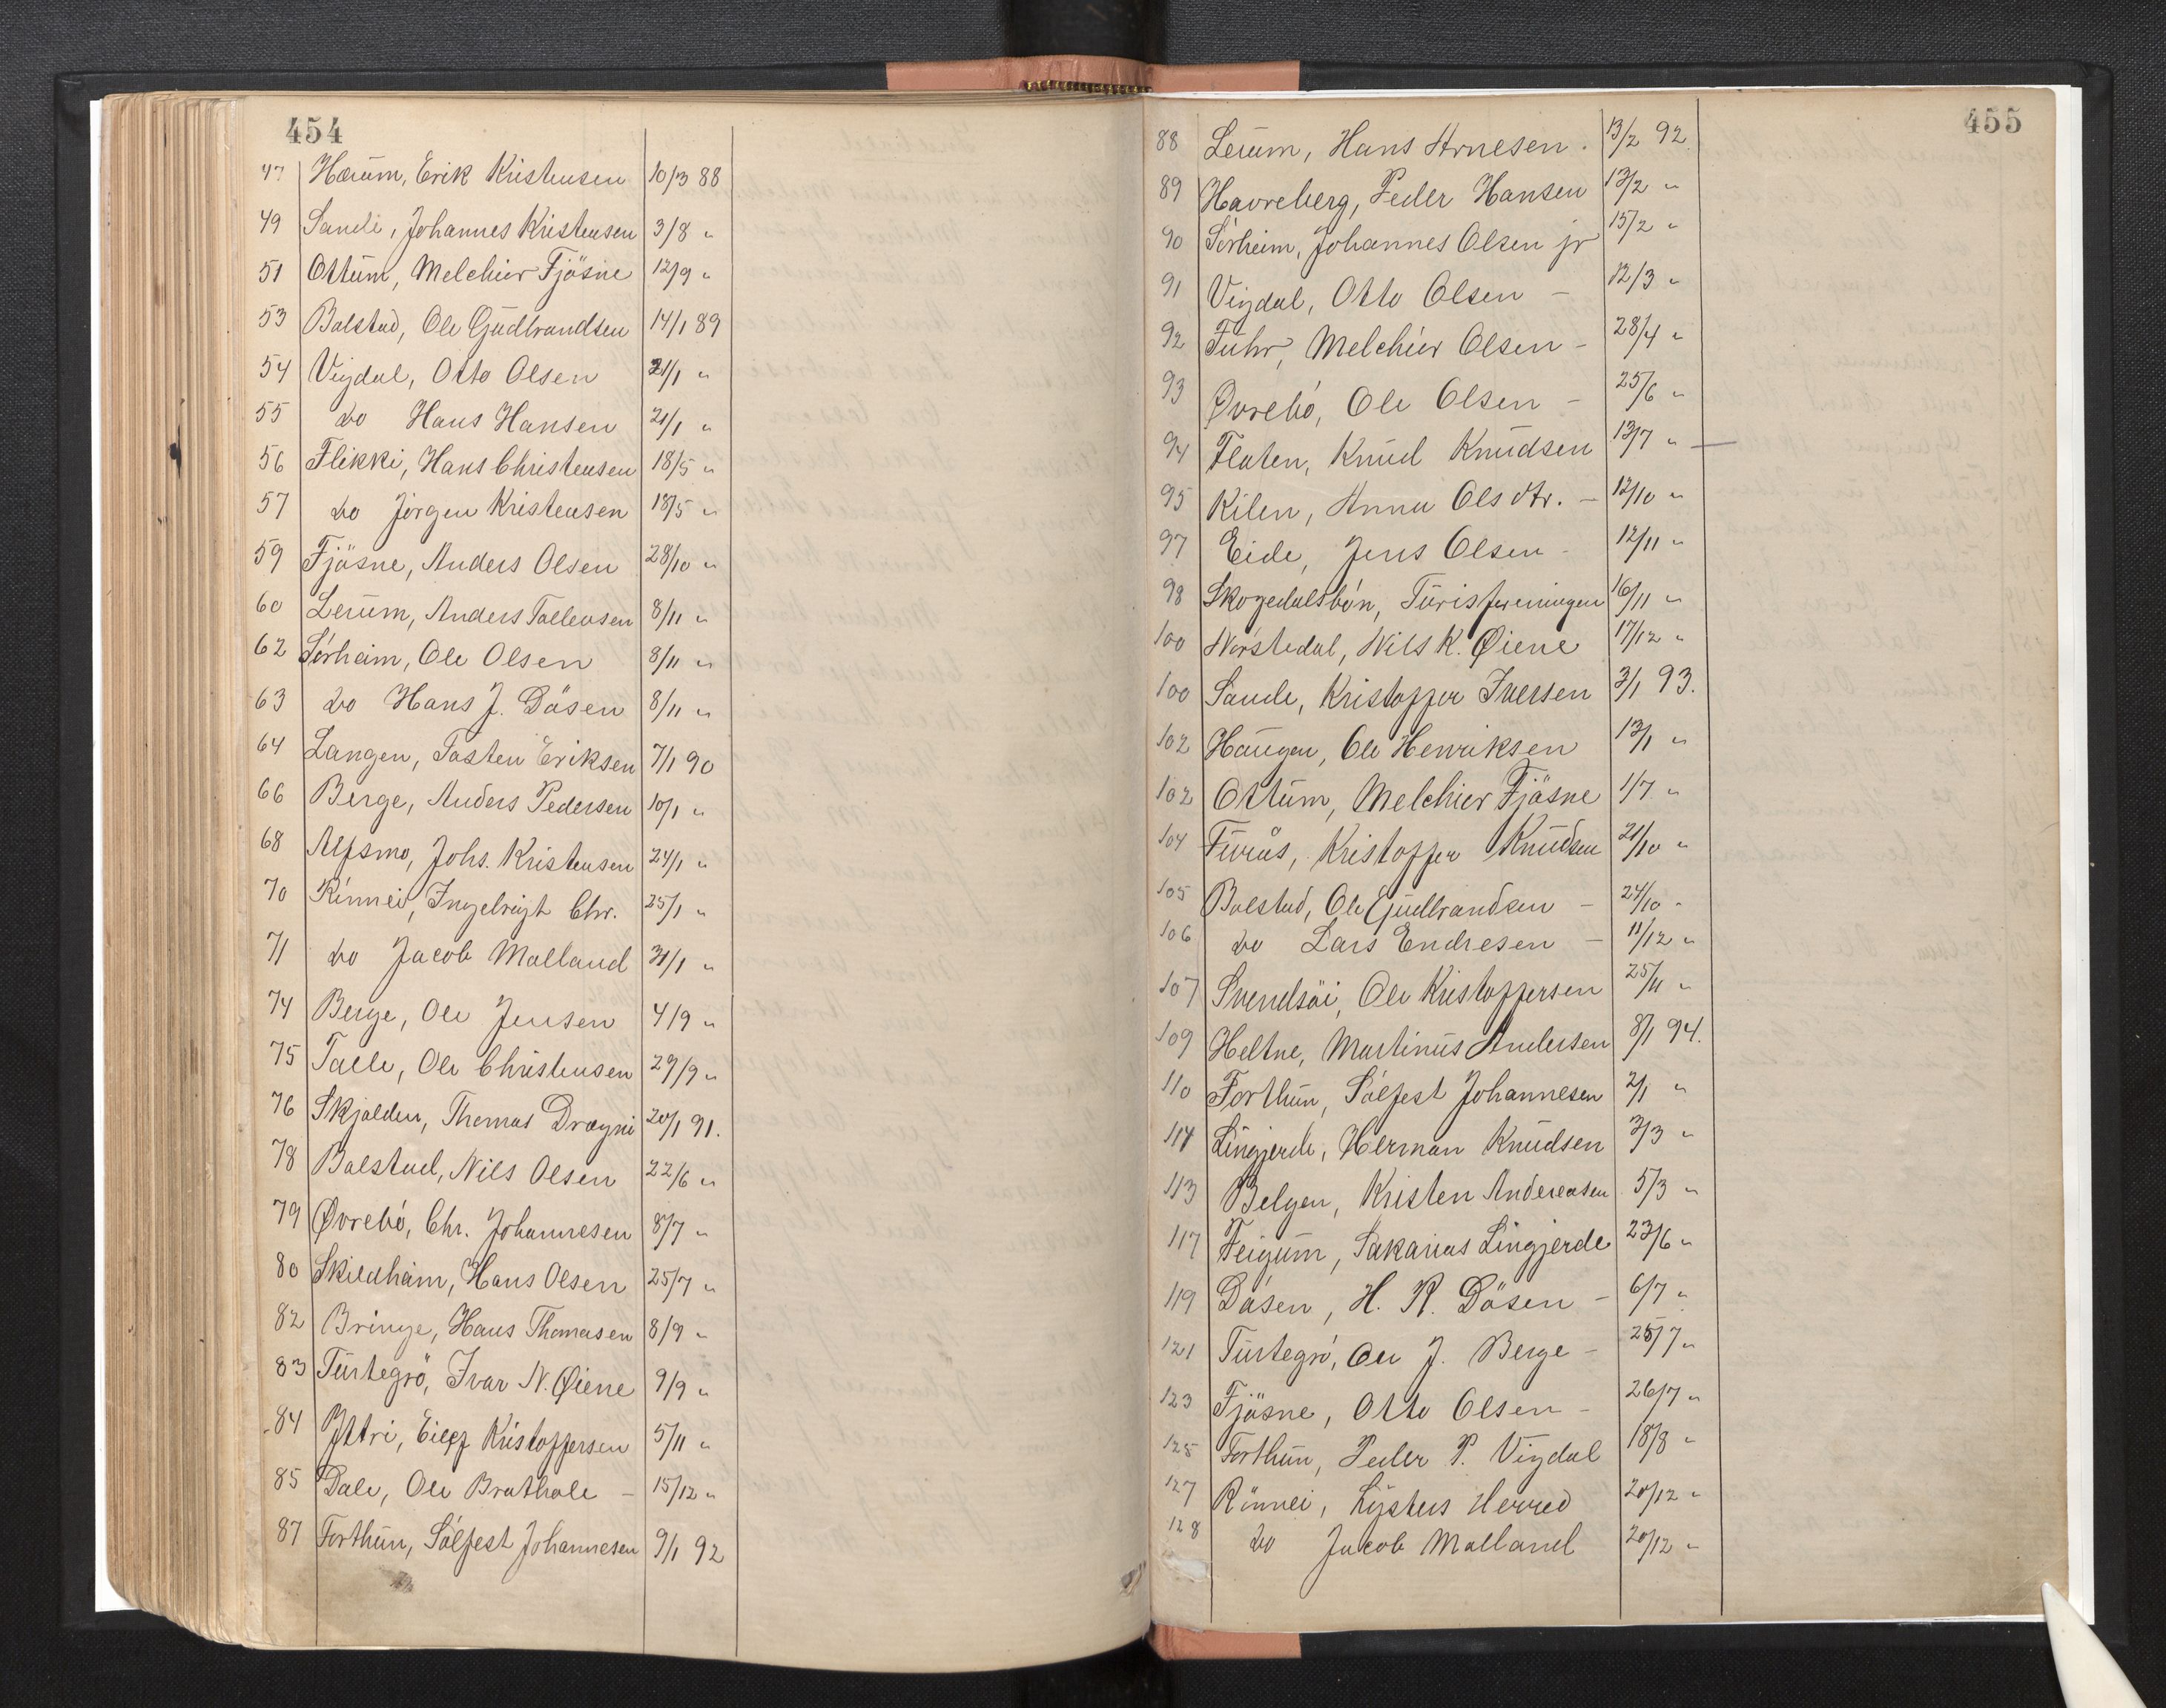 454
47 Hærum, Erik Kristensen 10/3 88
49 Sande, Johannes Kristensen 3/8 "
51 Ottum, Melchior Fjösne 12/9 "
53 Bolstad, Ole Gudbrandsen 14/1 89
54 Vigdal, Otto Olsen 21/1 "
55 do Hans Hansen 21/1 "
56 Flikki, Hans Christensen 18/5 "
57 do Jörgen Kristensen 18/5 "
59 Fjösne, Anders Olsen 28/10 "
60 Lerum, Anders Tollevsen 8/11 "
62 Sörheim, Ole Olsen 8/11 "
63 do Hans J. Dösen 8/11 "
64 Langen, Tosten Eriksen 7/1 90
66 Berge, Anders Pedersen 10/1 "
68 Alfsmo, Johs. Kristensen 24/1 "
70 Rönnei, Ingebrigt Chr. 25/1 "
71 do Jacob Molland 31/1 "
74 Berge, Ole Jensen 4/9 "
75 Talle, Ole Christensen 29/9 "
76 Skjolden, Thomas Drægni 20/1 91.
78 Bolstad, Nils Olsen 22/6 "
79 Øvrebö, Chr. Johannesen 8/7 "
80 Skildheim, Hans Olsen 25/7 "
82 Bringe, Hans Thomasen 8/9 "
83 Turtegrö, Ivar N. Øiene 9/9 "
84 Yttri, Eilef Kristoffersen 5/11 "
85 Dale, Ole Brathole – 15/12 "
87 Forthun, Sölfest Johannesen 9/1 92
455
88 Lerum, Hans Arnesen . 13/2 92
89 Havreberg, Peder Hansen 13/2 "
90 Sörheim, Johannes Olsen jr 15/2 "
91 Vigdal, Otto Olsen – 12/3 "
92 Fuhr, Melchior Olsen – 28/4 "
93 Øvrebö, Ole Olsen – 25/6 "
94 Flaten, Knud Knudsen 13/7 " –
95 Kilen, Anna Olsdtr. – 12/10 "
97 Eide, Jens Olsen – 12/11 "
98 Skogedalsbön, Turistforeningen 16/11 "
100 Nörstedal, Nils K. Øiene 17/12 "
100 Sande, Kristoffer Iversen 3/1 93.
102 Haugen, Ole Henriksen 13/1 "
102 Ottum, Melchior Fjösne 1/7 "
104 Furås, Kristoffer Knudsen 21/10 "
105 Bolstad, Ole Gudbrandsen – 24/10 "
106 do Lars Endresen – 11/12 "
107 Svendsöi, Ole Kristoffersen 25/11 "
109 Heltne, Martinus Andersen 8/1 94.
110 Forthun, Sölfest Johannesen 2/1 "
114 Lingjerde, Herman Knudsen 3/3 "
113 Bolgen, Kristen Andereasen 5/3 "
117 Feigum, Sakarias Lingjerde 23/6 "
119 Dösen, H. R. Dösen – 6/7 "
121 Turtegrö, Ole J. Berge – 25/7 "
123 Fjösne, Otto Olsen – 26/7 "
125 Forthun, Peder P. Vigdal 18/8 "
127 Rönnei, Lysters Herred 20/12 "
128 do Jacob Molland 20/12 "